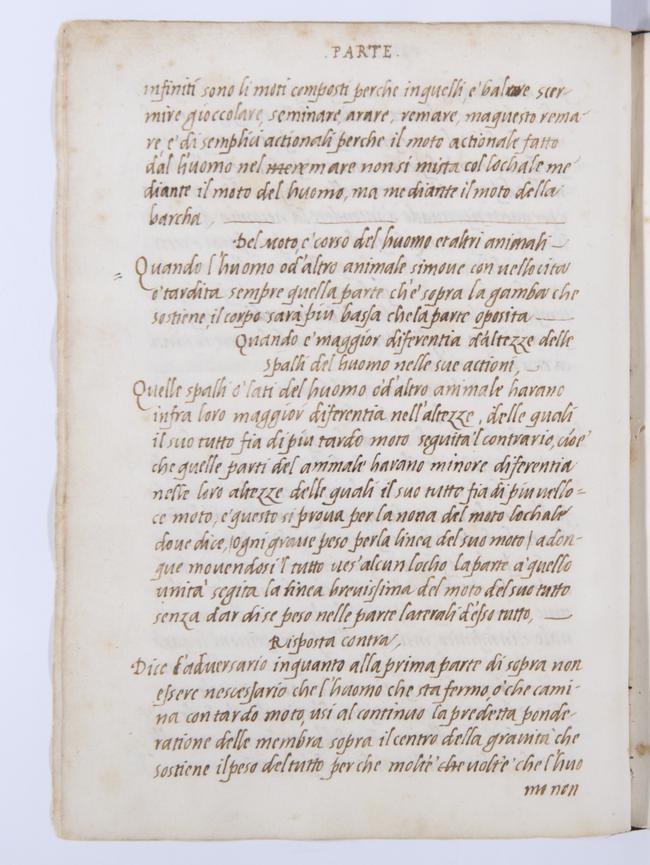 .PARTE.
infiniti sono li moti composti perche inquelli, e' balare scer-
mire gioccolare, seminare, arare, remare, maquesto rema-
re, e' di semplici actionali perche il moto actionale fatto
dal huomo nel remare non si mista col lochale me-
diante il moto del huomo, ma mediante il moto della
barcha,
Del Moto, e' corso del huomo et altri animali
Quando l'huomo od'altro animale simoue con uellocita
o' tardita sempre quella parte ch'e' sopra la gamba che
sostiene, il corpo sara piu bassa che la parte oposita
Quando e' maggior diferentia d'altezze delle
spalli del huomo nelle sue actioni,
Quelle spalli o' lati del huomo o'd'altro animale harano
infra loro maggior diferentia nell'altezze, delle quali
il suo tutto fia di piu tardo moto seguita'l contrario, cioe'
che quelle parti del animale harano minore diferentia
nelle loro altezze delle quali il suo tutto fia di piu uello=
ce moto, e' questo si proua per la nona del moto lochale
doue dice, ogni graue peso per la linea del suo moto) adon-
que mouendosi'l tutto uers'alcun locho la parte a' quello
unita' segita la linea breuissima del moto del suo tutto
senza d'ar di se peso nelle parte laterali d'esso tutto,
Risposta contra,
Dice l'aduersario inquanto alla prima parte di sopra non
essere nescessario che l'huomo che sta fermo, o' che cami-
na con tardo moto, usi al continuo la predetta ponde-
ratione delle membra sopra il centro della grauita' che
sostiene il peso del tutto per che molte' che uolte' che l'huo
mo non